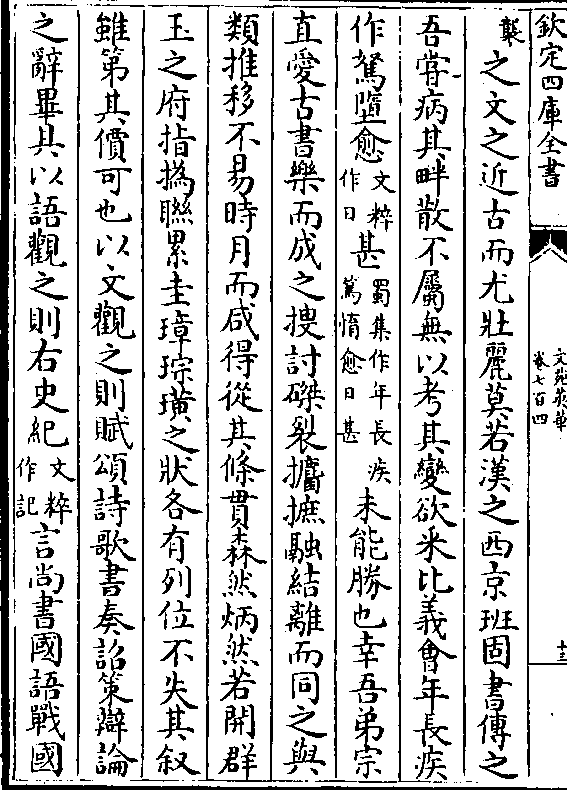 欽定四庫全書 文苑英華 卷七百四 十三
襲之文之近古而尤壯麗莫若漢之西京班固書傳之
吾嘗病其畔散不屬無以考其變欲采比義會年長疾
作駑墮愈文粹作日甚蜀集作年長疾篤惰愈日甚未能勝也幸吾弟宗
直愛古書樂而成之搜討磔裂攟摭融結離而同之與
類推移不易時月而咸得從其條貫森然炳然若開群
玉之府指撝聯累圭璋琮璜之狀各有列位不失其叙
雖第其價可也以文觀之則賦頌詩歌書奏詔策辯論
之辭畢具以語觀之則右史紀文粹作記言尚書國語戰國